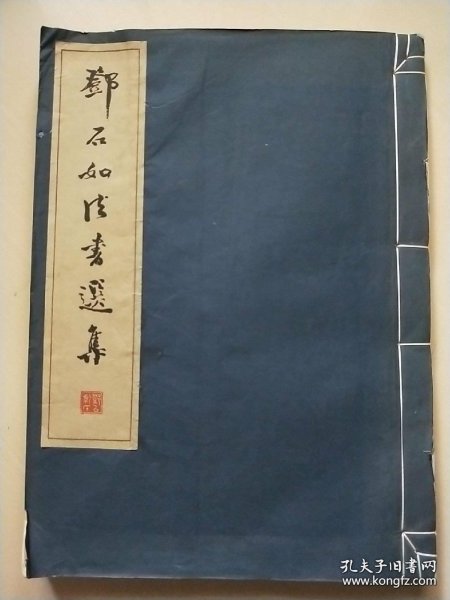 鄧石如法書選集
孔夫子旧书网
www.kongfz.com